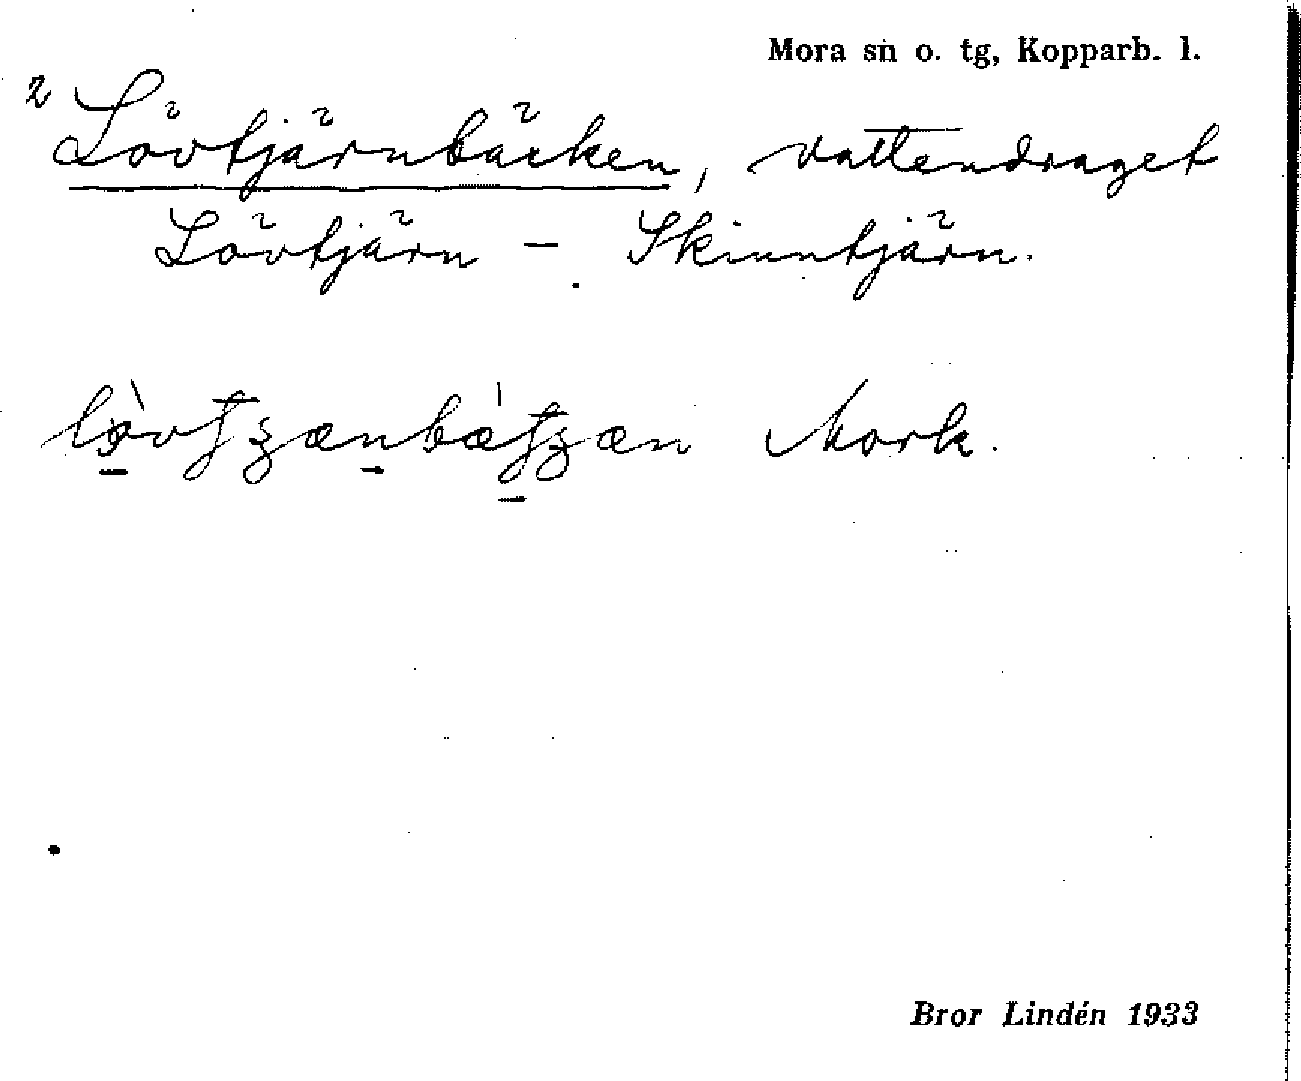 Mora sn o. tg, Kopparb. l.
2 Lövtjärnbäcken, vattendraget
Lövtjärn – Skinntjärn.
Mork.
Bror Lindén 1933